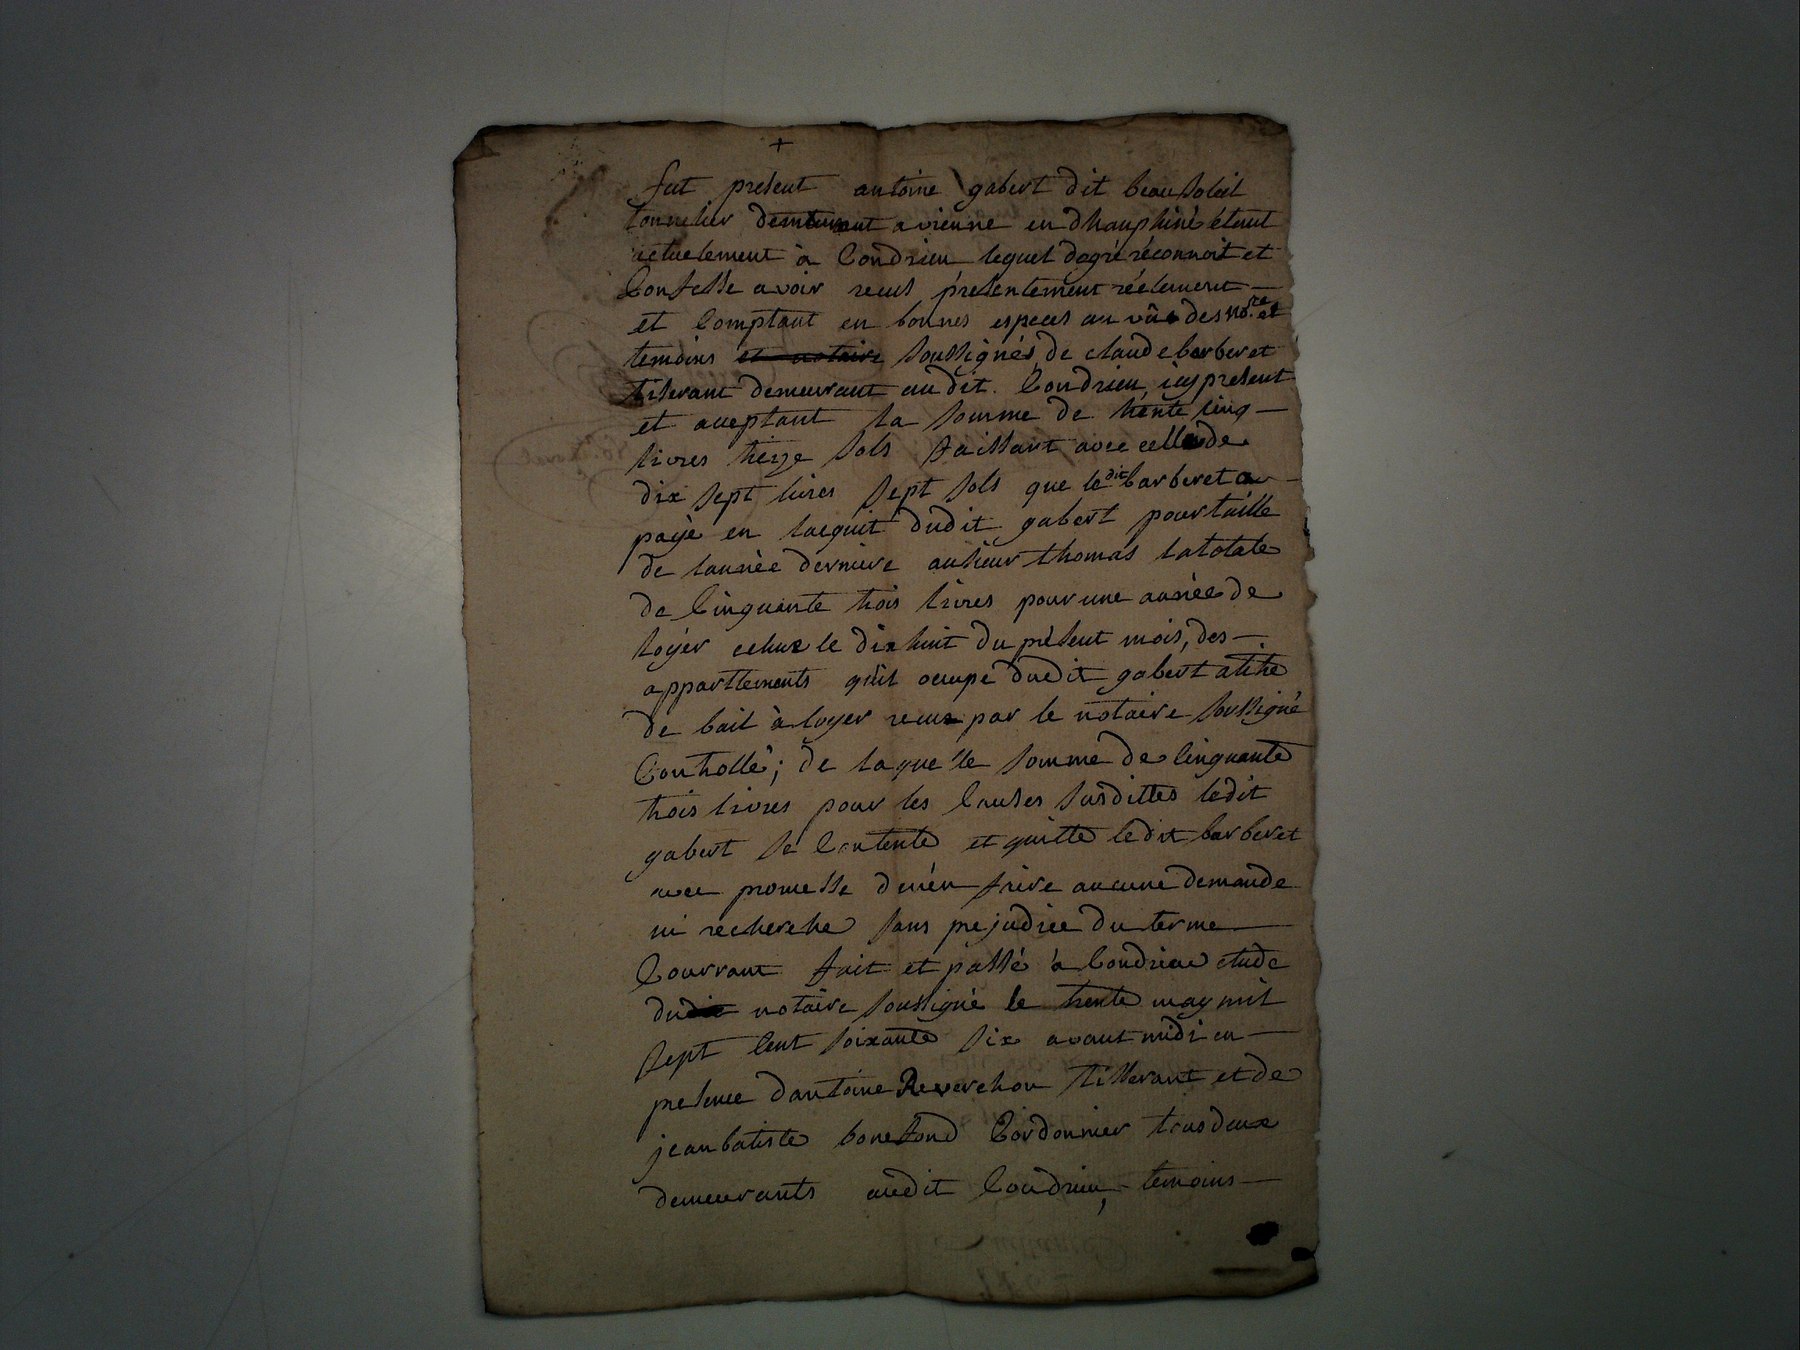 +
fut present antoine gabert dit beausoleil
tonnelier demeurant a vienne en dhauphiné étant
actuelement à Condrieu lequel dagré réconnoit et
Confesse avoir recus présentement réelement
et Comptant en bonnes especes au vû des no.re et
temoins et notaire soussignés de claude barberet
tiserant demeurant audit Condrieu icy present
et aceptant la somme de trente cinq
livres treize sols faissant avec celle de
dix sept livres sept sols que ledit barberet a
payé en lacquit dudit gabert pour taille
de lannèe derniere au sieur thomas la totale
de Cinquante trois livres pour une année de
loyér echue le dix huit du présent mois, des
appartements quil ocupe dudit gabert a titre
de bail à loyer recus par le notaire soussigné
Controllé; de laquelle somme de Cinquante
trois livres pour les Causes susdittes ledit
gabert se Contente et quitte ledit barberet
avec promesse denén faire aucune demande
ni recherche sans prejudice du terme
Courrant fait et passé à Condrieu etude
dudit notaire soussigné le trente may mil
sept Cent soixante six avant midi en
presence dantoine Reverchon tisserant et de
jean batiste bonefond Cordonnier tous deux
demeurants audit Condrieu, temoins